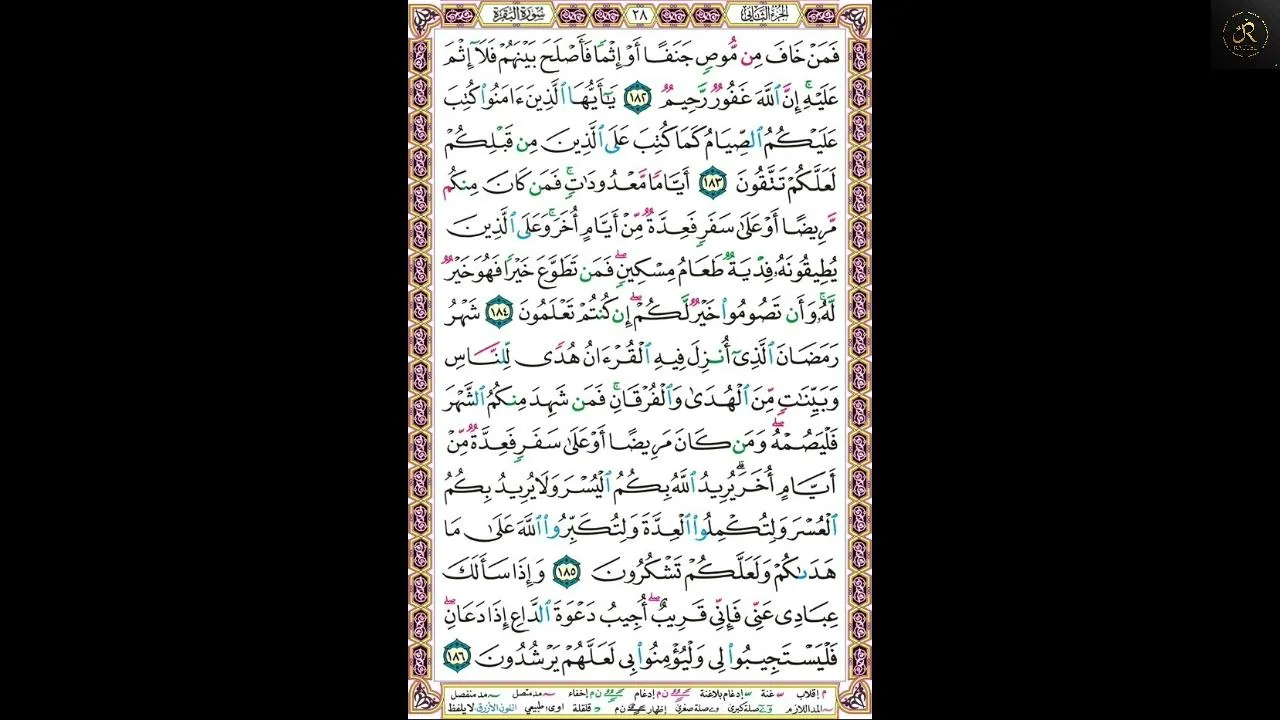 الجزء الثاني ٢٨ سورة البقرة
فَمَنْ خَافَ مِن مُّوصٍ جَنَفًا أَوْ إِثْمًا فَأَصْلَحَ بَيْنَهُمْ فَلَآ إِثْمَ
عَلَيْهِ ۚ إِنَّ ٱللَّهَ غَفُورٌ رَّحِيمٌ ١٨٢ يَـٰٓأَيُّهَا ٱلَّذِينَ ءَامَنُوا۟ كُتِبَ
عَلَيْكُمُ ٱلصِّيَامُ كَمَا كُتِبَ عَلَى ٱلَّذِينَ مِن قَبْلِكُمْ
لَعَلَّكُمْ تَتَّقُونَ ١٨٣ أَيَّامًا مَّعْدُودَٰتٍ ۚ فَمَن كَانَ مِنكُم
مَّرِيضًا أَوْ عَلَىٰ سَفَرٍ فَعِدَّةٌ مِّنْ أَيَّامٍ أُخَرَ ۚ وَعَلَى ٱلَّذِينَ
يُطِيقُونَهُۥ فِدْيَةٌ طَعَامُ مِسْكِينٍ ۖ فَمَن تَطَوَّعَ خَيْرًا فَهُوَ خَيْرٌ
لَّهُۥ ۚ وَأَن تَصُومُوا۟ خَيْرٌ لَّكُمْ ۖ إِن كُنتُمْ تَعْلَمُونَ ١٨٤ شَهْرُ
رَمَضَانَ ٱلَّذِىٓ أُنزِلَ فِيهِ ٱلْقُرْءَانُ هُدًى لِّلنَّاسِ
وَبَيِّنَـٰتٍ مِّنَ ٱلْهُدَىٰ وَٱلْفُرْقَانِ ۚ فَمَن شَهِدَ مِنكُمُ ٱلشَّهْرَ
فَلْيَصُمْهُ ۖ وَمَن كَانَ مَرِيضًا أَوْ عَلَىٰ سَفَرٍ فَعِدَّةٌ مِّنْ
أَيَّامٍ أُخَرَ ۗ يُرِيدُ ٱللَّهُ بِكُمُ ٱلْيُسْرَ وَلَا يُرِيدُ بِكُمُ
ٱلْعُسْرَ وَلِتُكْمِلُوا۟ ٱلْعِدَّةَ وَلِتُكَبِّرُوا۟ ٱللَّهَ عَلَىٰ مَا
هَدَىٰكُمْ وَلَعَلَّكُمْ تَشْكُرُونَ ١٨٥ وَإِذَا سَأَلَكَ
عِبَادِى عَنِّى فَإِنِّى قَرِيبٌ ۖ أُجِيبُ دَعْوَةَ ٱلدَّاعِ إِذَا دَعَانِ ۖ
فَلْيَسْتَجِيبُوا۟ لِى وَلْيُؤْمِنُوا۟ بِى لَعَلَّهُمْ يَرْشُدُونَ ١٨٦
م إقلاب غنة إدغام بلاغنة ن م إدغام ن م إخفاء مد متصل مد منفصل
المد اللازم صلة كبرى وے صلة صغرى إظهار ن م قلقلة اوى طبيعي اللون الأزرق لا يلفظ